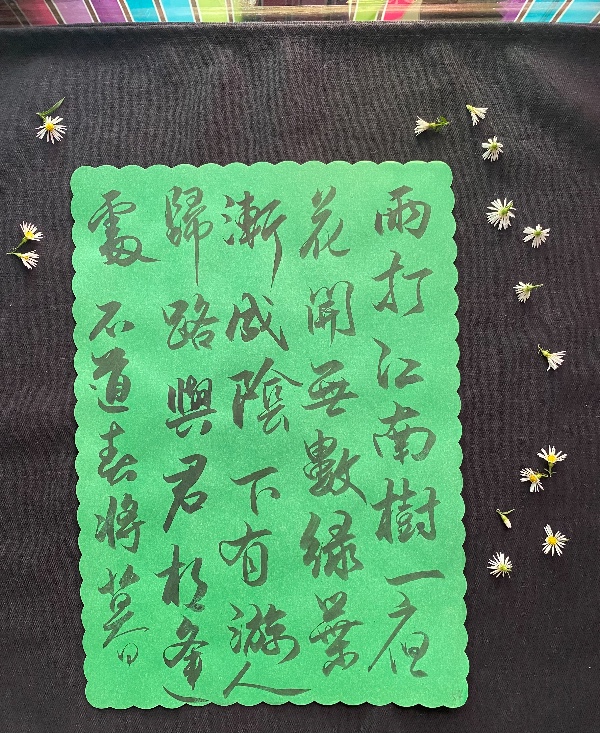 雨打江南樹一夜
花開無數緑葉
漸成陰下有游人
歸路與君相逢
處不道春將暮